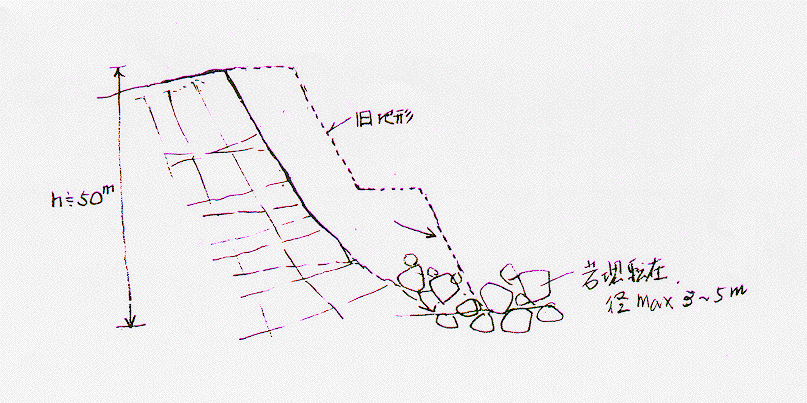 旧地形
h≒50m
岩塊転在、
径 max 3~5m